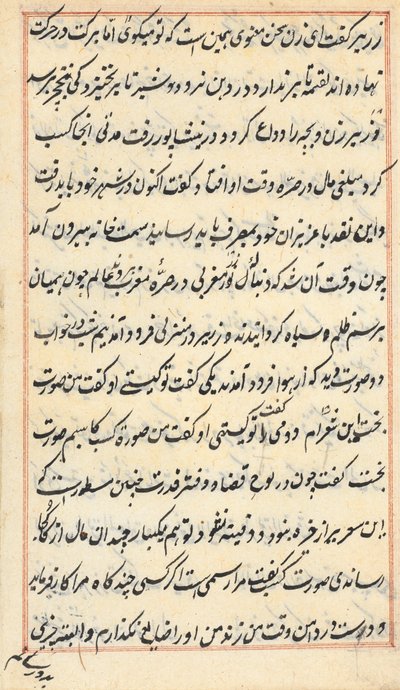 زبیر گفت ای زن سخن معنوی همین است که تو میگوی اما برکت در حرکت
نهاده اند لقمه تا بر ندارد در دهن نرود و شیر تا بر نخیزد کی نخچیر برسد
و زبیر زن و بچه را وداع کرد و در نیشابور رفت مدتی انجا کسب
کرد مبلغی مال در صره وقت او افتاد و گفت اکنون در شهر خود باید رفت
و این نقد با عزیزان خود بمصرف باید رسانید سمت خانه بیرون آمد
چون وقت آن شد که دنبال زر مغربی در صره مغرب و عالم چون همیان
بر سیم ظلم و سیاه گردانیدند زبیر در منزلی فرود آمد نیم شب در خواب
دو صورت دید که از هوا فرود آمدند یکی گفت تو کیستی او گفت من صورت
بخت این نفرام دومی را گفت تو کیستی او گفت من صورة کسب کاسبم صورت
بخت گفت چون در لوح قضا و دفتر قدرت چنین مسطورست که
این مدبر از خیره بنود و دفینه نقود تو هم یکبار چندان مال از کجا
رساندی صورت کسب گفت مرا رسمی است اگر کسی چندگاه مرا کار فرماید
و دست در دامن وقت من زند من او را ضایع نگذارم و البته چیزی
بدو رسانم